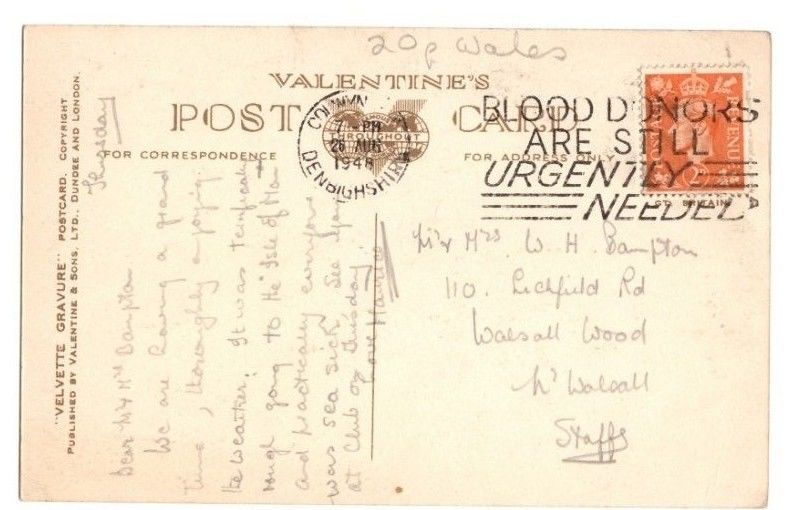 20p Wales
VALENTINE'S
POST CARD
FOR CORRESPONDENCE
FOR ADDRESS ONLY
THROUGHOUT
COLWYN
7 - PM
26 AUG
1948
DENBIGHSHIRE
BLOOD DONORS
ARE STILL
URGENTLY
NEEDED
REVENUE
GT. BRITAIN
"VELVETTE GRAVURE" POSTCARD. COPYRIGHT
PUBLISHED BY VALENTINE & SONS, LTD., DUNDEE AND LONDON.
Thursday
Dear Mr & Mrs Bampton
We are having a grand
time, thoroughly enjoying
the weather. It was
rough going to the Isle of Man
and practically everyone
was sea sick. See you
at Club on Tuesday
love
Mr & Mrs W. H. Bampton
110. Lichfield Rd
Walsall Wood
Nr Walsall
Staffs